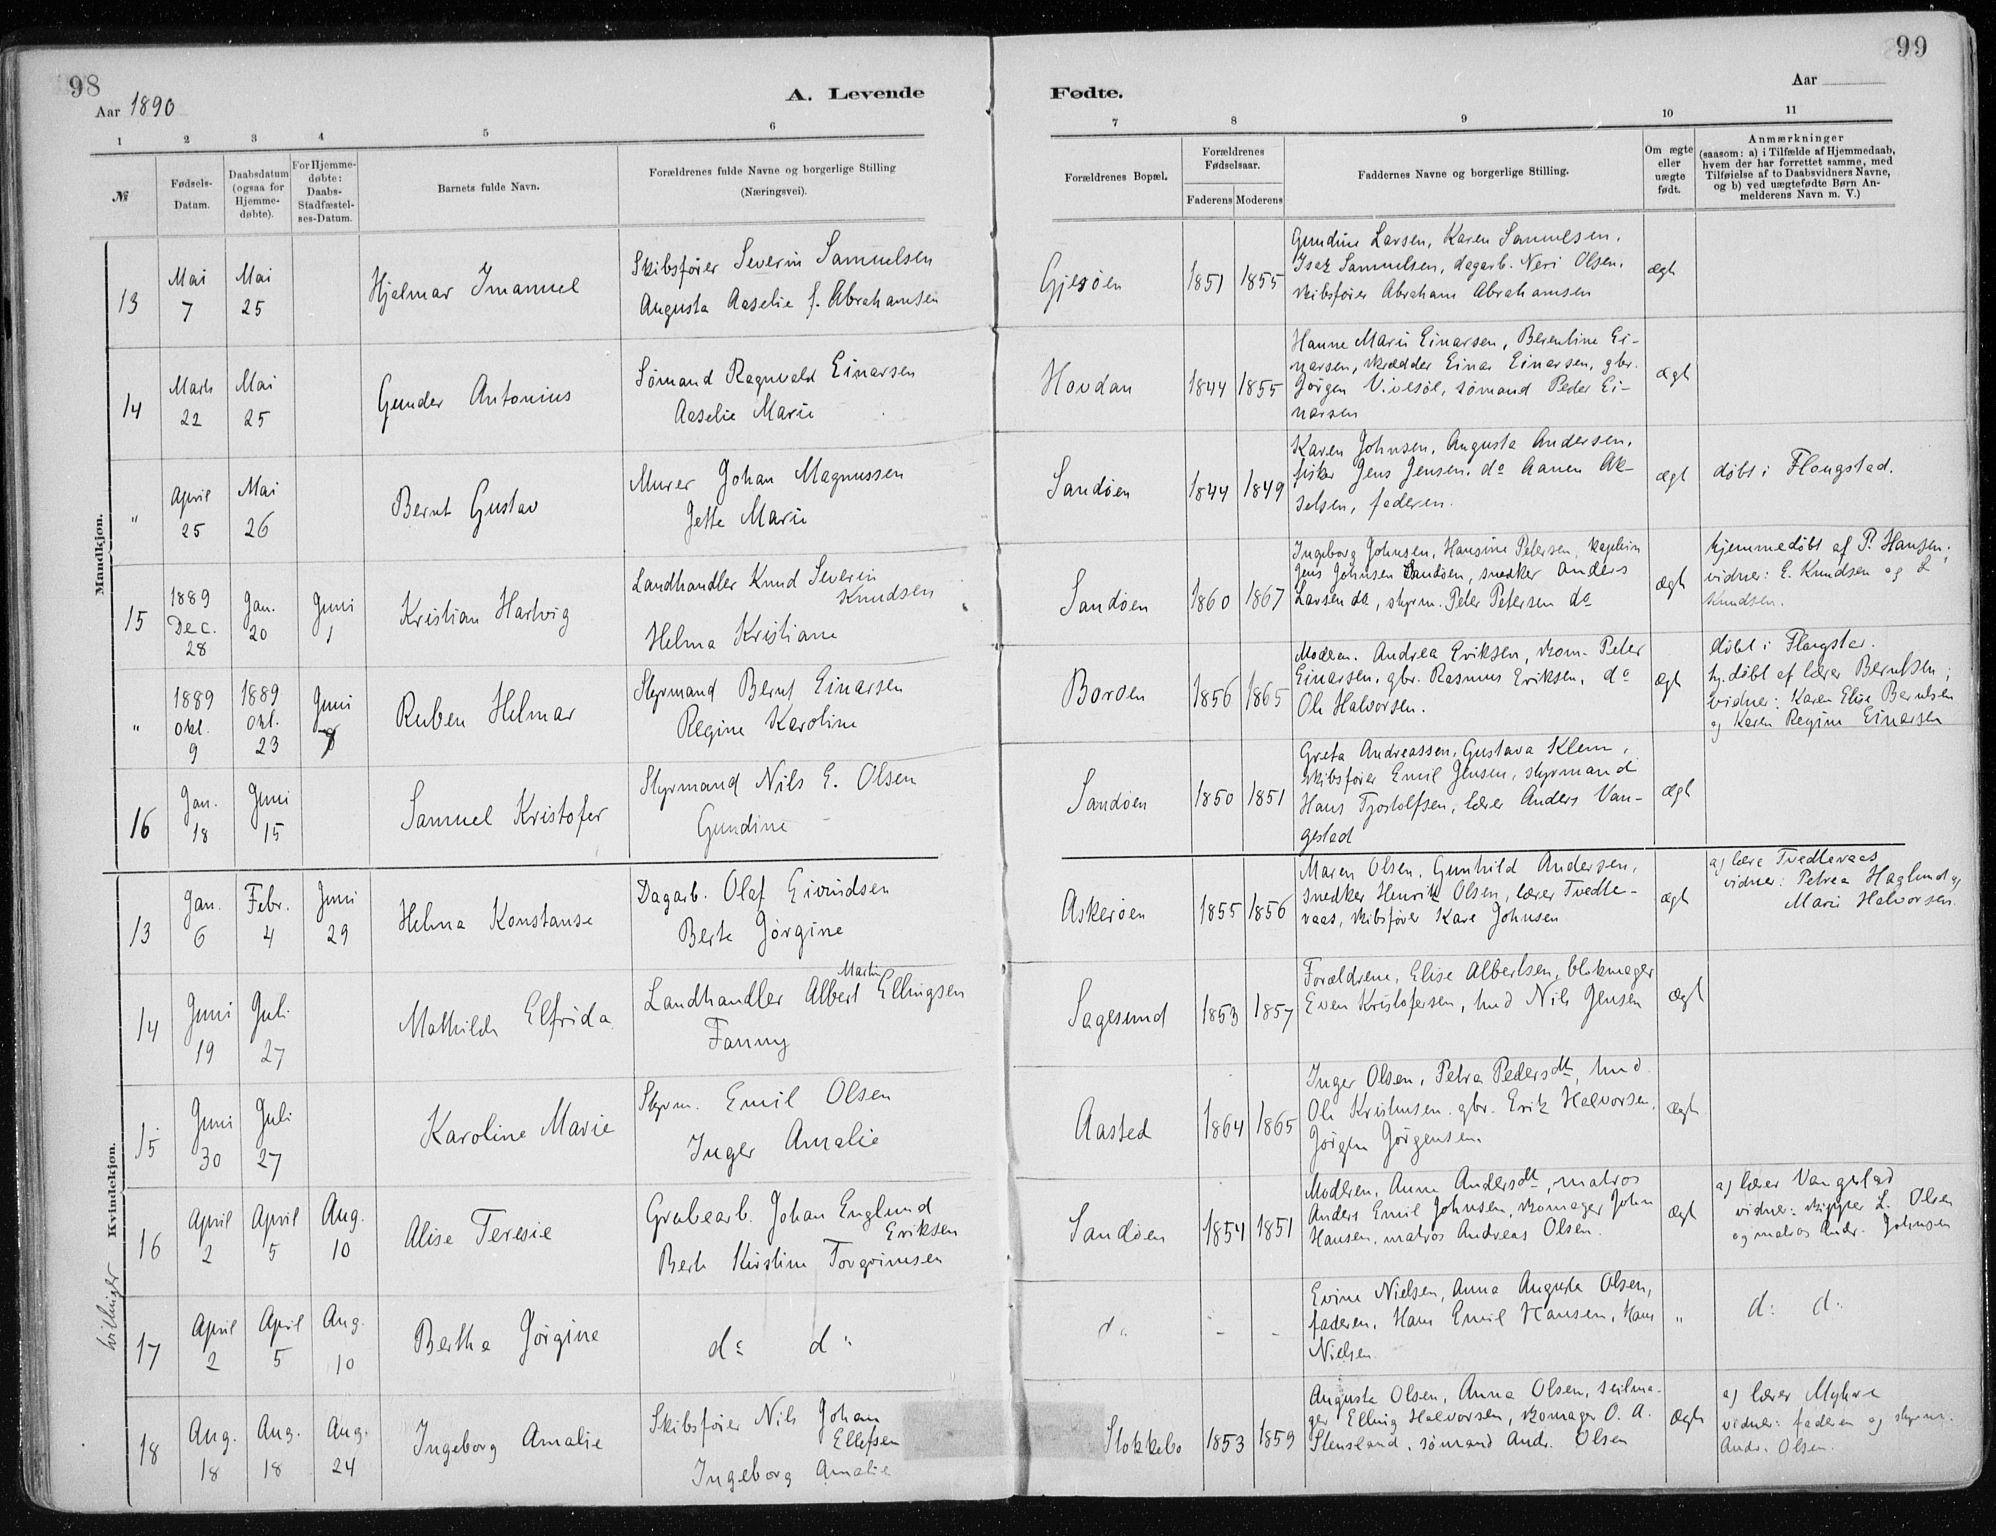 98
Aar 1890
A. Levende
1 2 3 4 5 6
№
Fødsels-
Datum.
Daabsdatum
(ogsaa for
Hjemme-
døbte).
For Hjemme-
døbte:
Daabs-
Stadfæstel-
ses-Datum.
Barnets fulde Navn.
Forældrenes fulde Navne og borgerlige Stilling
(Næringsvei).
99
Aar
Fødte.
7 8 9 10 11
Forældrenes Bopæl.
Forældrenes
Fødselsaar.
Faderens Moderens
Faddernes Navne og borgerlige Stilling.
Om ægte
eller
uægte
født.
Anmærkninger
(saasom: a) i Tilfælde af Hjemmedaab,
hvem der har forrettet samme, med
Tilføielse af to Daabsvidners Navne,
og b) ved uægtefødte Børn An-
melderens Navn m. V.)
Mandkjøn.
13 Mai 7 Mai 25 Hjalmar Imanuel
Skibsfører Severin Samuelsen
Augusta Aaselie f. Abrahamsen
Gjesøen 1851 1855
Gundine Larsen, Karen Samuelsen,
Isak Samuelsen, dagarb. Neri Olsen,
skibsfører Abraham Abrahamsen
ægt
14 Marts 22 Mai 25 Gunder Antonius
Sømand Ragnvald Einarsen
Aaselie Marie
Hovdan 1844 1855
Hanne Marie Einarsen, Berentine Ei-
narsen, skrædder Einar Einarsen, gbr.
Jørgen Vivesøl, sømand Peder Ei-
narsen
ægt
" April 25 Mai 26 Bernt Gustav
Murer Johan Magnussen
Jette Marie
Sandøen 1844 1849
Karen Johnsen, Augusta Andersen,
fisker Jens Jensen, do Aanen Ak-
selsen, faderen.
ægt
døbt i Flangstad.
15 1889 Dec. 28 Jan. 20 Juni 1 Kristian Hartvig
Landhandler Knud Severin
Knudsen
Helma Kristiane
Sandøen 1860 1867
Ingeborg Johnsen, Hansine Petersen, kaptein
Jens Johnsen Sandøen, snedker Anders
Larsen do, styrm. Peter Petersen do
ægt
hjemmedøbt af P. Hansen;
vidner: E. Knudsen og L
Knudsen.
" 1889 Okt. 9 1889 Okt. 23 Juni 8 Ruben Helmar
Styrmand Bernt Einarsen
Regine Karoline
Borøen 1856 1865
Moderen. Andrea Eriksen, skom. Peter
Einarsen, gbr. Rasmus Eriksen, do
Ole Halvorsen.
ægt
døbt i Flangstad.
hj. døbt af lærer Berntsen;
vidner: Karen Elise Berntsen
og Karen Regine Einarsen
16 Jan. 18 Juni 15 Samuel Kristofer
Styrmand Nils E. Olsen
Gundine
Sandøen 1850 1851
Greta Andreassen, Gustava Klem,
skibsfører Emil Jensen, styrmand
Hans Tjostolfsen, lærer Anders Van-
gestad
ægt
Kvindekjøn.
13 Jan. 6 Febr. 4 Juni 29 Helma Konstanse
Dagarb. Olaf Eivindsen
Berte Jørgine
Askerøen 1855 1856
Maren Olsen, Gunhild Andersen,
snedker Henrik Olsen, lærer Tvedte-
raas, skibsfører Kare Johnsen
ægt
a) lærer Tvedteraas
vidner: Petrea Haglund og
Marie Halvorsen.
14 Juni 19 Juli 27 Mathilde Elfrida
Martin
Landhandler Albert Ellingsen
Fanny
Sagesund 1853 1857
Forældrene, Elise Albertsen, blokmager
Even Kristofersen, hmd Nils Jensen
ægt
15 Juni 30 Juli 27 Karoline Marie
Styrm. Emil Olsen
Inger Amalie
Aasted 1864 1865
Inger Olsen, Petra Pedersdtr, hmd
Ole Kristensen, gbr. Erik Halvorsen,
Jørgen Jørgensen.
ægt
tvillinger
16 April 2 April 5 Aug. 10 Alise Teresie
Grubearb. Johan Englund
Eriksen
Berte Kirstine Torgrimsen
Sandøen 1854 1851
Moderen, Anne Andersdtr, matros
Anders Emil Johnsen, skomager John
Hansen, matros Andreas Olsen.
ægt
a) lærer Vangstad
vidner: skipper L. Olsen
og matros Andr. Johnsen
17 April 2 April 5 Aug. 10 Bertha Jørgine
do do
do - -
Evine Nielsen, Anna Augusta Olsen,
faderen, Hans Emil Hansen, Hans
Nielsen
"
do do
18 Aug. 18 Aug. 18 Aug. 24 Ingeborg Amalie
Skibsfører Nils Johan
Ellefsen
Ingeborg Amalie
Stokkebo 1853 1859
Augusta Olsen, Anna Olsen, seilma-
ger Elling Halvorsen, skomager O. A.
Stensland, sømand And. Olsen
ægt
a) lærer Myhre
vidner: faderen og styrm.
Andr. Olsen.